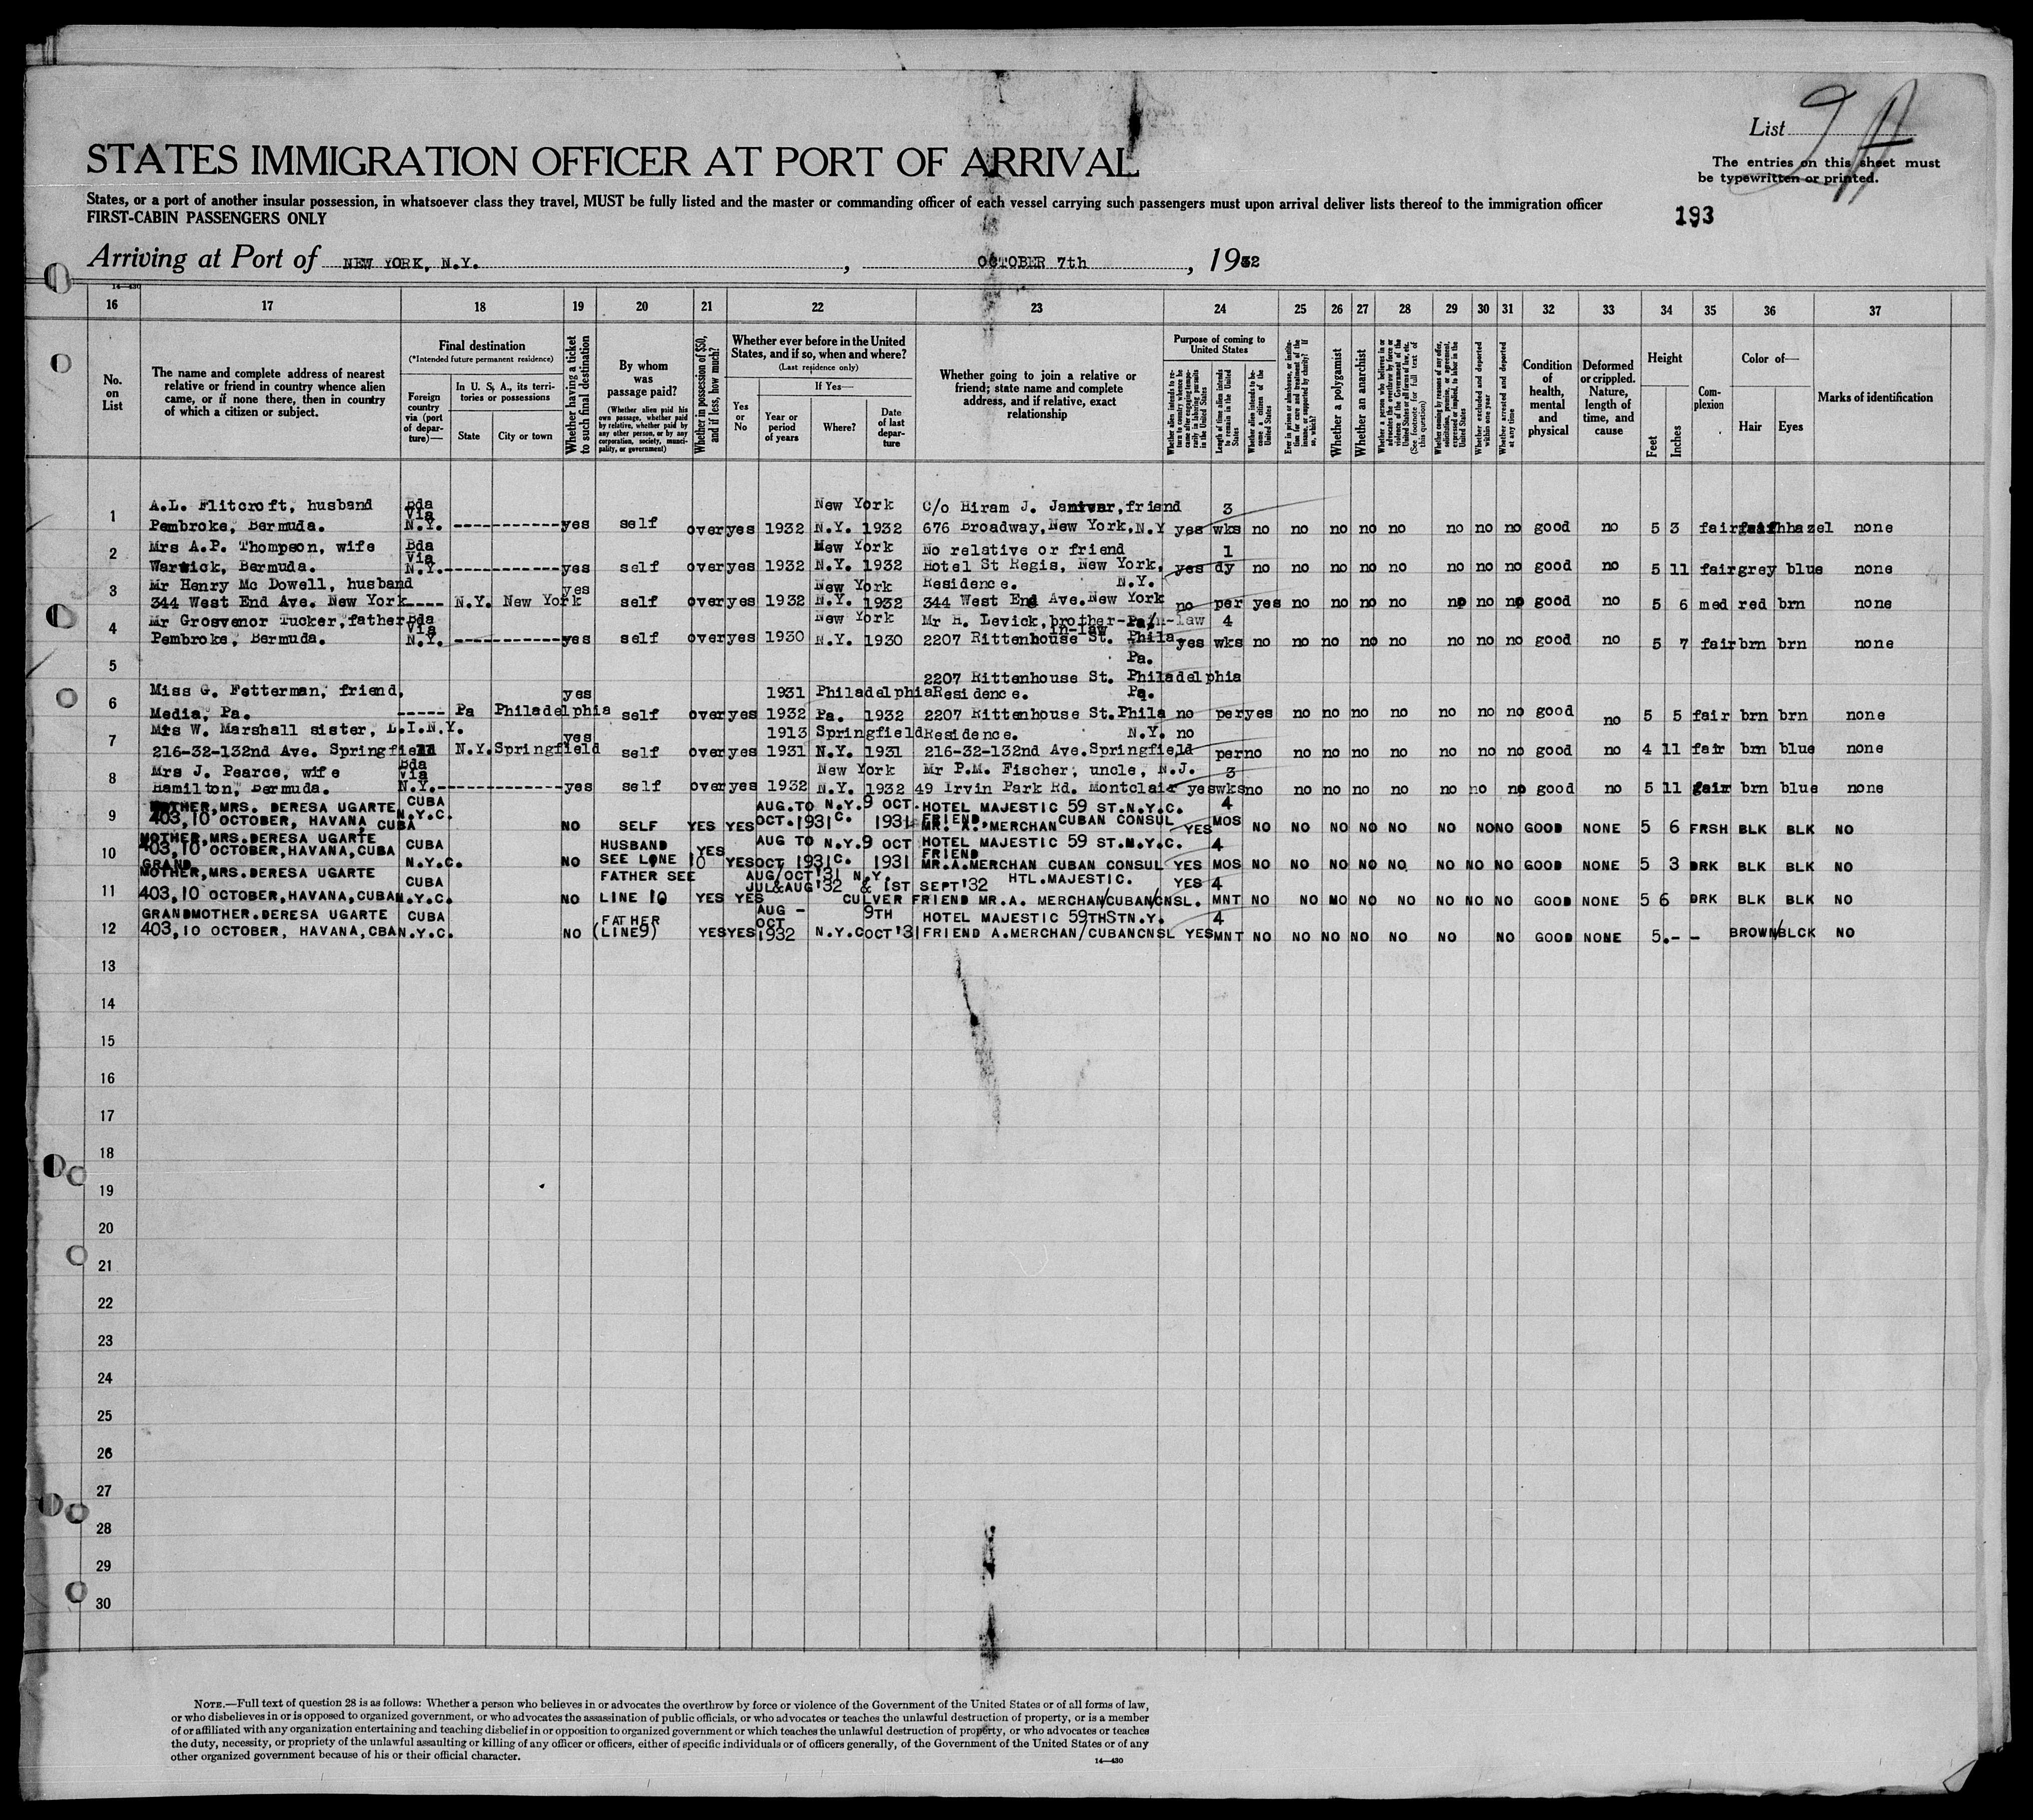 List 9A
STATES IMMIGRATION OFFICER AT PORT OF ARRIVAL
The entries on this sheet must
be typewritten or printed.
States, or a port of another insular possession, in whatsoever class they travel, MUST be fully listed and the master or commanding officer of each vessel carrying such passengers must upon arrival deliver lists thereof to the immigration officer
FIRST-CABIN PASSENGERS ONLY
193
Arriving at Port of NEW YORK, N.Y. , OCTOBER 7th , 1932
14-430
16 17 18 19 20 21 22 23 24 25 26 27 28 29 30 31 32 33 34 35 36 37
No. on List
The name and complete address of nearest relative or friend in country whence alien came, or if none there, then in country of which a citizen or subject.
Final destination
(*Intended future permanent residence)
Foreign country via (port of departure)—
In U. S. A., its territories or possessions
State City or town
Whether having a ticket to such final destination
By whom was passage paid?
(Whether alien paid his own passage, whether paid by relative, whether paid by any other person, or by any corporation, society, municipality, or government)
Whether in possession of $50, and if less, how much?
Whether ever before in the United States, and if so, when and where?
(Last residence only)
Yes or No
If Yes—
Year or period of years
Where?
Date of last departure
Whether going to join a relative or friend; state name and complete address, and if relative, exact relationship
Purpose of coming to United States
Whether alien intends to return to country whence he came after engaging temporarily in laboring pursuits in the United States
Length of time alien intends to remain in the United States
Whether alien intends to become a citizen of the United States
Ever in prison or almshouse, or institution for care and treatment of the insane, or supported by charity? If so, which?
Whether a polygamist
Whether an anarchist
Whether a person who believes in or advocates the overthrow by force or violence of the Government of the United States or all forms of law, etc. (See footnote for full text of this question)
Whether coming by reasons of any offer, solicitation, promise, or agreement, expressed or implied, to labor in the United States
Whether excluded and deported within one year
Whether arrested and deported at any time
Condition of health, mental and physical
Deformed or crippled. Nature, length of time, and cause
Height
Feet Inches
Complexion
Color of—
Hair Eyes
Marks of identification
A.L. Flitcroft, husband Bda Via New York C/o Hiram J. friend 3
1 Pembroke, Bermuda. N.Y. ------------yes self over yes 1932 N.Y. 1932 676 Broadway, New York, N.Y yes wks no no no no no no no no good no 5 3 fair hazel none
Mrs A.P. Thompson, wife Bda Via New York No relative or friend 1
2 Warwick, Bermuda. N.Y.-------------yes self over yes 1932 N.Y. 1932 Hotel St Regis, New York. yes dy no no no no no no no no good no 5 11 fair grey blue none
Mr Henry Mc Dowell, husband yes New York Residence. N.Y.
3 344 West End Ave. New York---- N.Y. New York self over yes 1932 N.Y. 1932 344 West End Ave. New York no per yes no no no no no no no good no 5 6 med red brn none
Mr Grosvenor Tucker, father Bda Via New York Mr H. Levick, brother-in-law 4
4 Pembroke, Bermuda. N.Y. ------------yes self over yes 1930 N.Y. 1930 2207 Rittenhouse St. Phila yes wks no no no no no no no no good no 5 7 fair brn brn none
5 Pa.
2207 Rittenhouse St. Philadelphia
Miss G. Fetterman, friend, yes 1931 Philadelphia Residence. Pa.
6 Media, Pa. ----- Pa Philadelphia self over yes 1932 Pa. 1932 2207 Rittenhouse St. Phila no per yes no no no no no no no good no 5 5 fair brn brn none
Mrs W. Marshall sister, L.I.N.Y. yes 1913 Springfield Residence. N.Y. no
7 216-32-132nd Ave. Springfield N.Y. Springfield self over yes 1931 N.Y. 1931 216-32-132nd Ave. Springfield per no no no no no no no no good no 4 11 fair brn blue none
Mrs J. Pearce, wife Bda Via New York Mr P.M. Fischer, uncle, N.J. 3
8 Hamilton, Bermuda. N.Y.-------------yes self over yes 1932 N.Y. 1932 49 Irvin Park Rd. Montclair yes wks no no no no no no no no good no 5 11 fair brn blue none
MOTHER, MRS. DERESA UGARTE CUBA AUG. TO N.Y. 9 OCT. HOTEL MAJESTIC 59 ST. N.Y.C. 4
9 403, 10 OCTOBER, HAVANA, CUBA N.Y.C. NO SELF YES YES OCT. 1931 C. 1931 FRIEND MR. A. MERCHAN CUBAN CONSUL YES MOS NO NO NO NO NO NO NO NO GOOD NONE 5 6 FRSH BLK BLK NO
MOTHER, MRS. DERESA UGARTE CUBA HUSBAND YES AUG TO N.Y. 9 OCT HOTEL MAJESTIC 59 ST. N.Y.C. 4
10 403, 10 OCTOBER, HAVANA, CUBA N.Y.C. NO SEE LONE 10 YES OCT 1931 C. 1931 FRIEND MR. A. MERCHAN CUBAN CONSUL YES MOS NO NO NO NO NO NO NO NO GOOD NONE 5 3 DRK BLK BLK NO
GRAND
MOTHER, MRS. DERESA UGARTE CUBA FATHER SEE AUG/OCT'31 N.Y. JUL&AUG'32 & 1ST SEPT'32 HTL. MAJESTIC. YES 4
11 403, 10 OCTOBER, HAVANA, CUBA N.Y.C. NO LINE 10 YES YES CULVER FRIEND MR. A. MERCHAN/CUBAN/CNSL. MNT NO NO MO NO NO NO NO NO GOOD NONE 5 6 DRK BLK BLK NO
GRANDMOTHER. DERESA UGARTE CUBA FATHER AUG - OCT 9TH HOTEL MAJESTIC 59TH ST N.Y. 4
12 403, 10 OCTOBER, HAVANA, CBA N.Y.C. NO (LINE 9) YES YES 1932 N.Y.C OCT'31 FRIEND A. MERCHAN/CUBANCNSL YES MNT NO NO NO NO NO NO NO GOOD NONE 5.- - BROWN/BLCK NO
13
14
15
16
17
18
19
20
21
22
23
24
25
26
27
28
29
30
NOTE.—Full text of question 28 is as follows: Whether a person who believes in or advocates the overthrow by force or violence of the Government of the United States or of all forms of law,
or who disbelieves in or is opposed to organized government, or who advocates the assassination of public officials, or who advocates or teaches the unlawful destruction of property, or is a member
of or affiliated with any organization entertaining and teaching disbelief in or opposition to organized government or which teaches the unlawful destruction of property, or who advocates or teaches
the duty, necessity, or propriety of the unlawful assaulting or killing of any officer or officers, either of specific individuals or of officers generally, of the Government of the United States or of any
other organized government because of his or their official character.
14—430